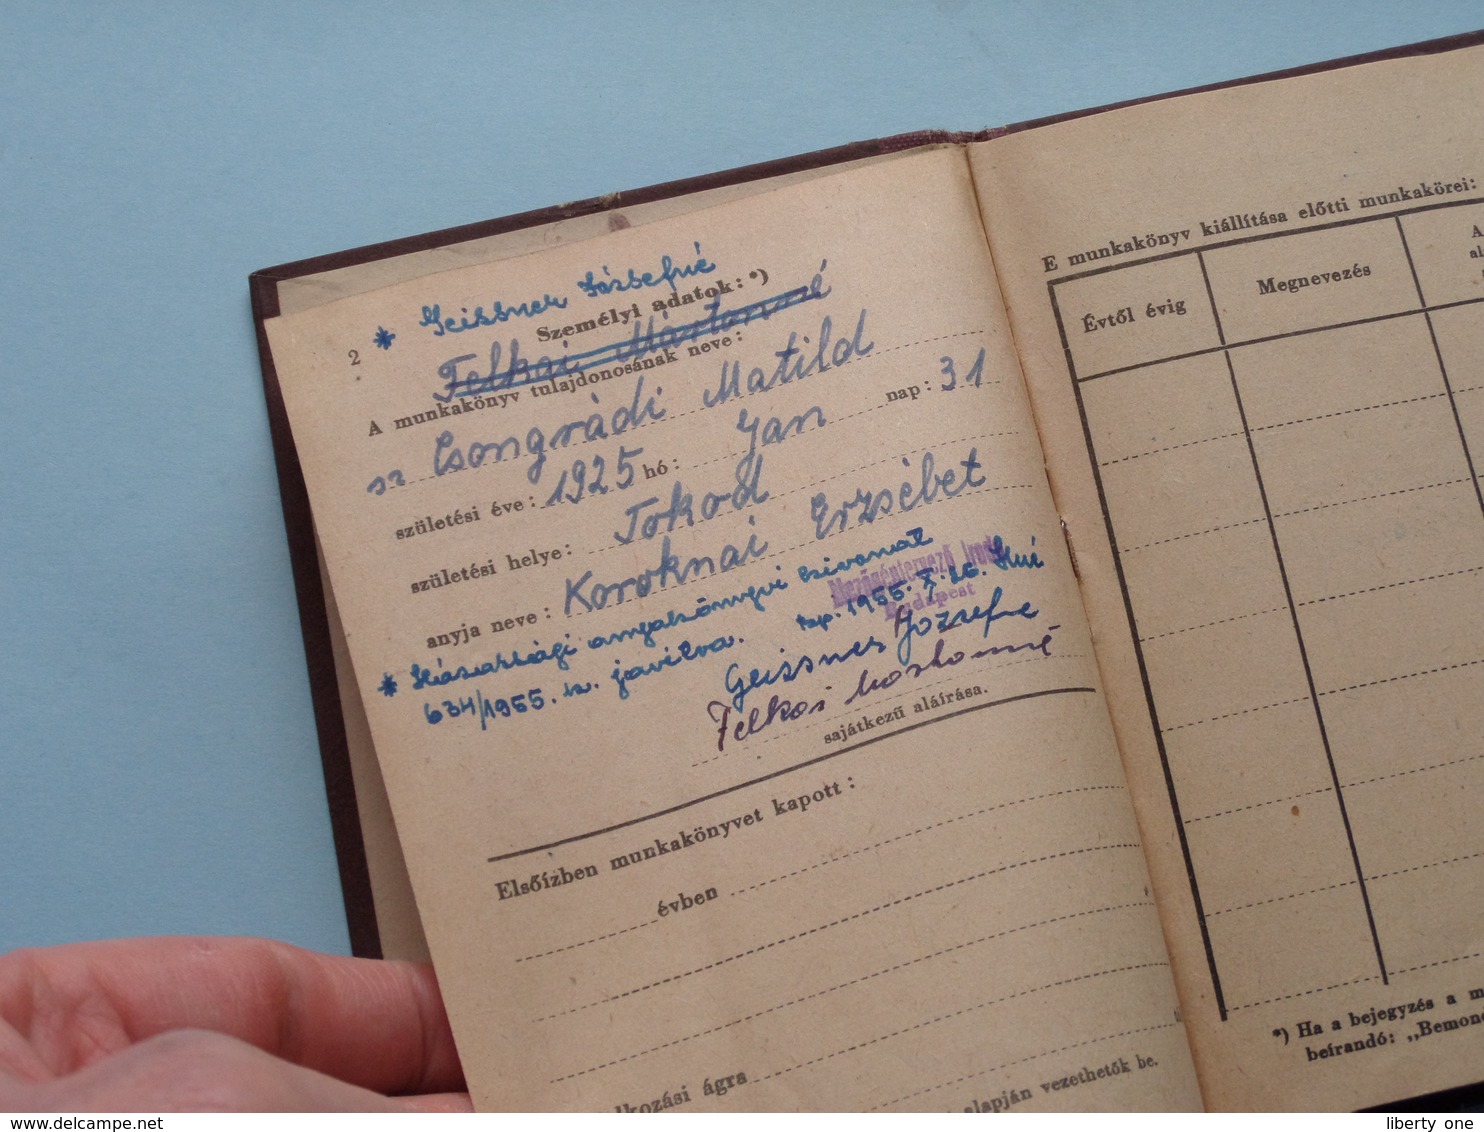 2
* Geissner Józsefné
Személyi adatok: *)
Felkai Mártonné
A munkakönyv tulajdonosának neve:
sz Csongrádi Matild
születési éve: 1925 hó: Jan nap: 31
születési helye: Tokod
anyja neve: Koroknai Erzsébet
* Házassági anyakönyvi kivonat
634/1955. sz. javítva. Bp. 1955. X. 26.
Mezőgéptervező Iroda
Budapest
Geissner Józsefné
Felkai Mártonné
sajátkezű aláírása.
Elsőízben munkakönyvet kapott:
évben
lkozási ágra
alapján vezethetők be.
E munkakönyv kiállítása előtti munkakörei:
Évtől évig
Megnevezés
A
al
*) Ha a bejegyzés a m
beírandó: „Bemond
delcampe.net
liberty one